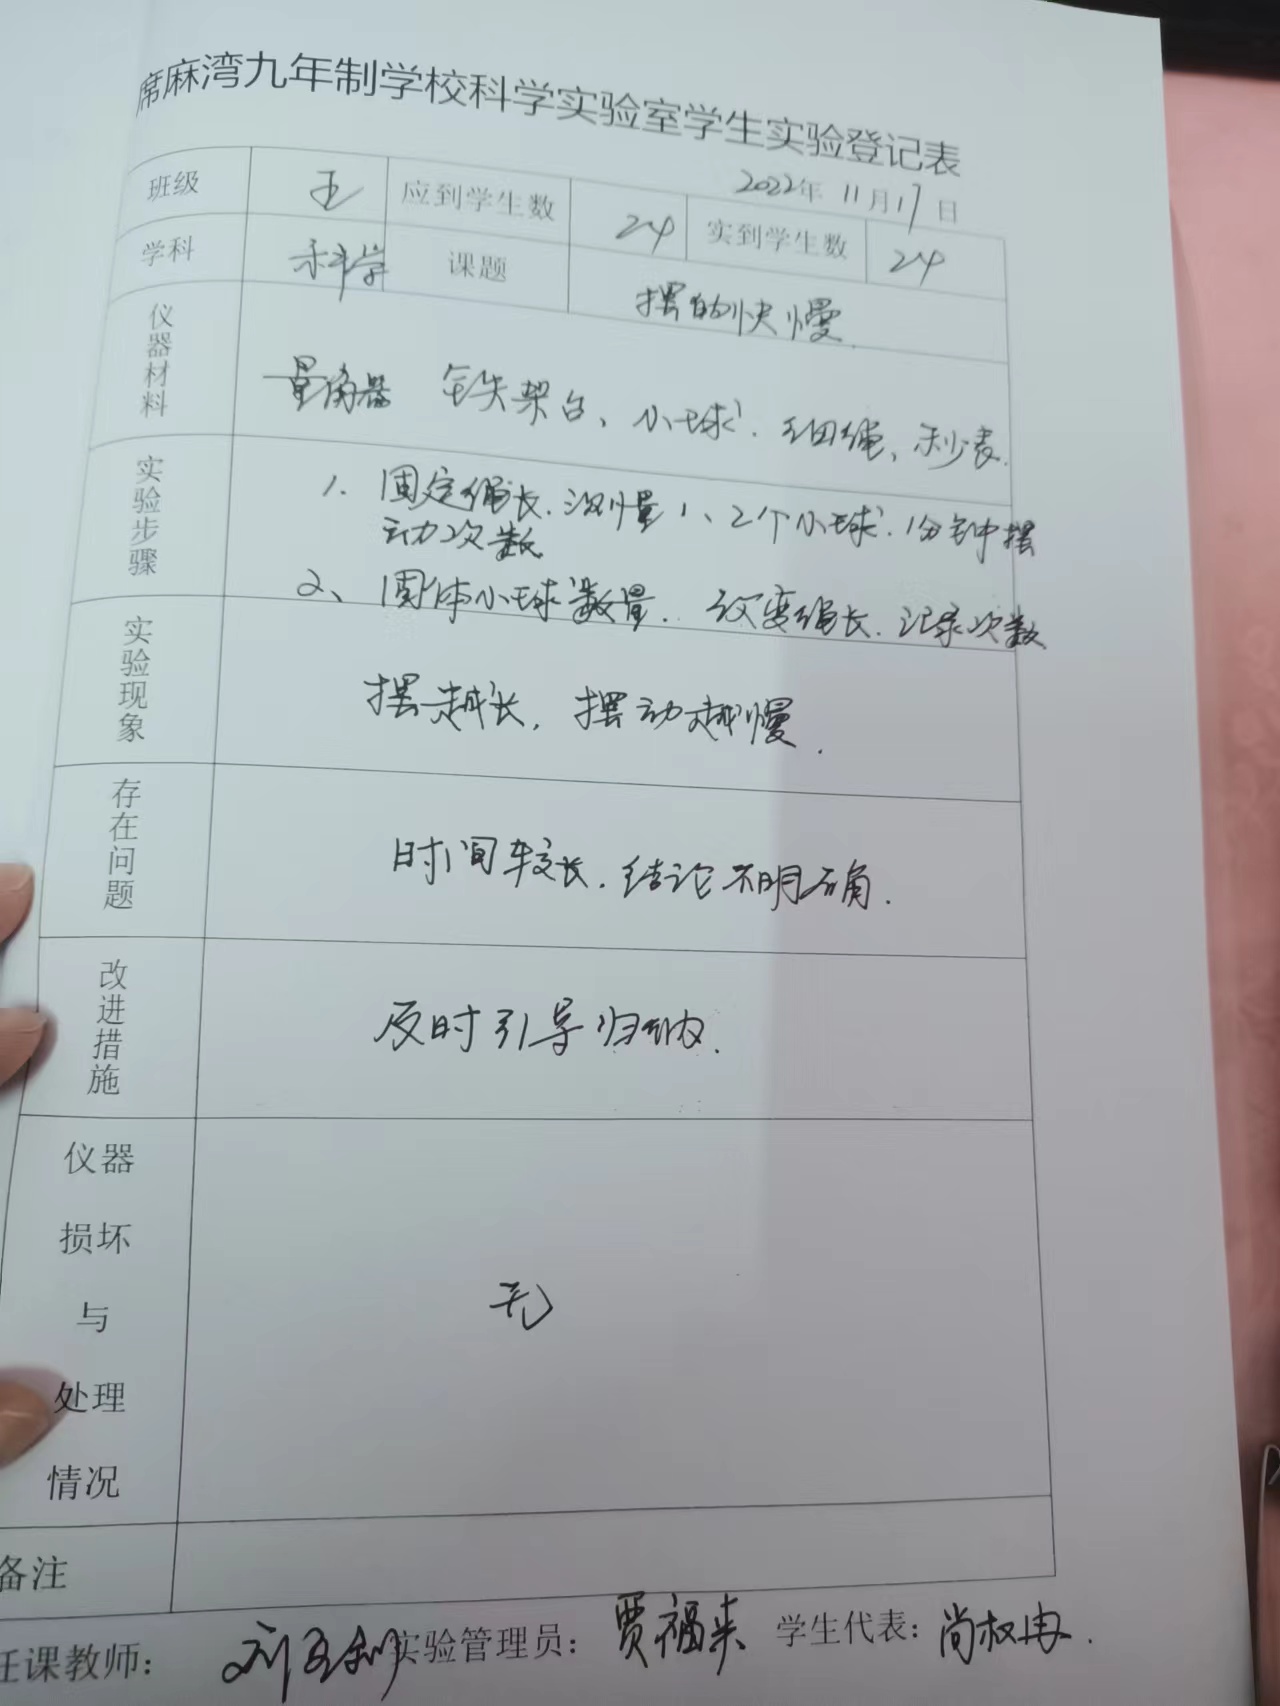 席麻湾九年制学校科学实验室学生实验登记表
2022年 11月17日
班级 五 应到学生数 24 实到学生数 24
学科 科学 课题 摆的快慢.
仪器材料 量角器 铁架台、小球、细绳、秒表.
实验步骤 1. 固定绳长.测量1、2个小球.1分钟摆
动次数
2、固体小球数量.改变绳长.记录次数
实验现象 摆越长,摆动越慢.
存在问题 时间较长.结论不明确.
改进措施 及时引导归纳.
仪器
损坏
与
处理
情况
无
备注
任课教师: 实验管理员: 贾福来 学生代表: